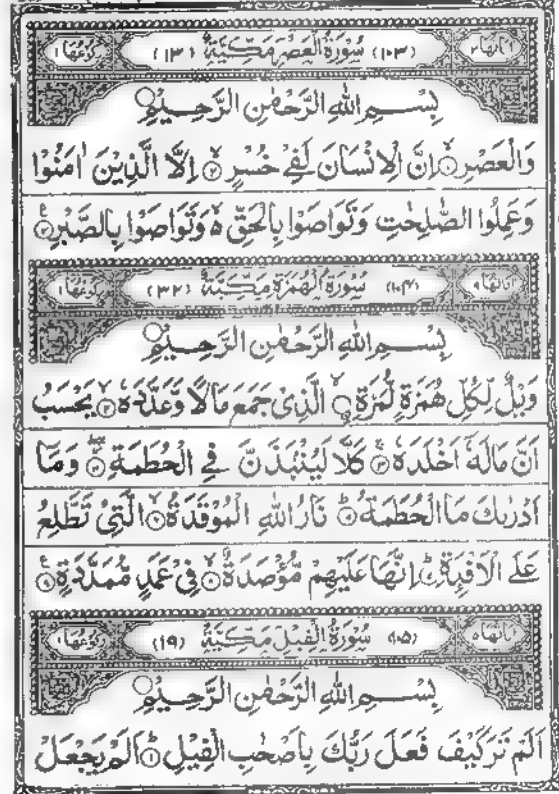 اٰیاتھا ٣ (١٠٣) سُوْرَةُ الْعَصْرِ مَكِّيَّةٌ (١٣) رکوعھا ١
بِسْــــمِ اللهِ الرَّحْمٰنِ الرَّحِـــيْمِ
وَالْعَصْرِ ۙ﴿١﴾ اِنَّ الْاِنْسَانَ لَفِیْ خُسْرٍ ۙ﴿٢﴾ اِلَّا الَّذِيْنَ اٰمَنُوْا
وَعَمِلُوا الصّٰلِحٰتِ وَتَوَاصَوْا بِالْحَقِّ ۙ۬ وَتَوَاصَوْا بِالصَّبْرِ ﴿٣﴾
اٰیاتھا ٩ (١٠٤) سُوْرَةُ الْهُمَزَةِ مَكِّيَّةٌ (٣٢) رکوعھا ١
بِسْــــمِ اللهِ الرَّحْمٰنِ الرَّحِـــيْمِ
وَيْلٌ لِّكُلِّ هُمَزَةٍ لُّمَزَةِ ۙ﴿١﴾ الَّذِیْ جَمَعَ مَالًا وَّعَدَّدَهٗ ۙ﴿٢﴾ يَحْسَبُ
اَنَّ مَالَهٗۤ اَخْلَدَهٗ ۚ﴿٣﴾ كَلَّا لَيُنْۢبَذَنَّ فِی الْحُطَمَةِ ﴿٤﴾ وَمَاۤ
اَدْرٰىكَ مَا الْحُطَمَةُ ؕ﴿٥﴾ نَارُ اللهِ الْمُوْقَدَةُ ۙ﴿٦﴾ الَّتِیْ تَطَّلِعُ
عَلَی الْاَفْـِٕدَةِ ؕ﴿٧﴾ اِنَّهَا عَلَيْهِمْ مُّؤْصَدَةٌ ۙ﴿٨﴾ فِیْ عَمَدٍ مُّمَدَّدَةٍ ﴿٩﴾
اٰیاتھا ٥ (١٠٥) سُوْرَةُ الْفِيْلِ مَكِّيَّةٌ (١٩) رکوعھا ١
بِسْــــمِ اللهِ الرَّحْمٰنِ الرَّحِـــيْمِ
اَلَمْ تَرَ كَيْفَ فَعَلَ رَبُّكَ بِاَصْحٰبِ الْفِيْلِ ؕ﴿١﴾ اَلَمْ يَجْعَلْ